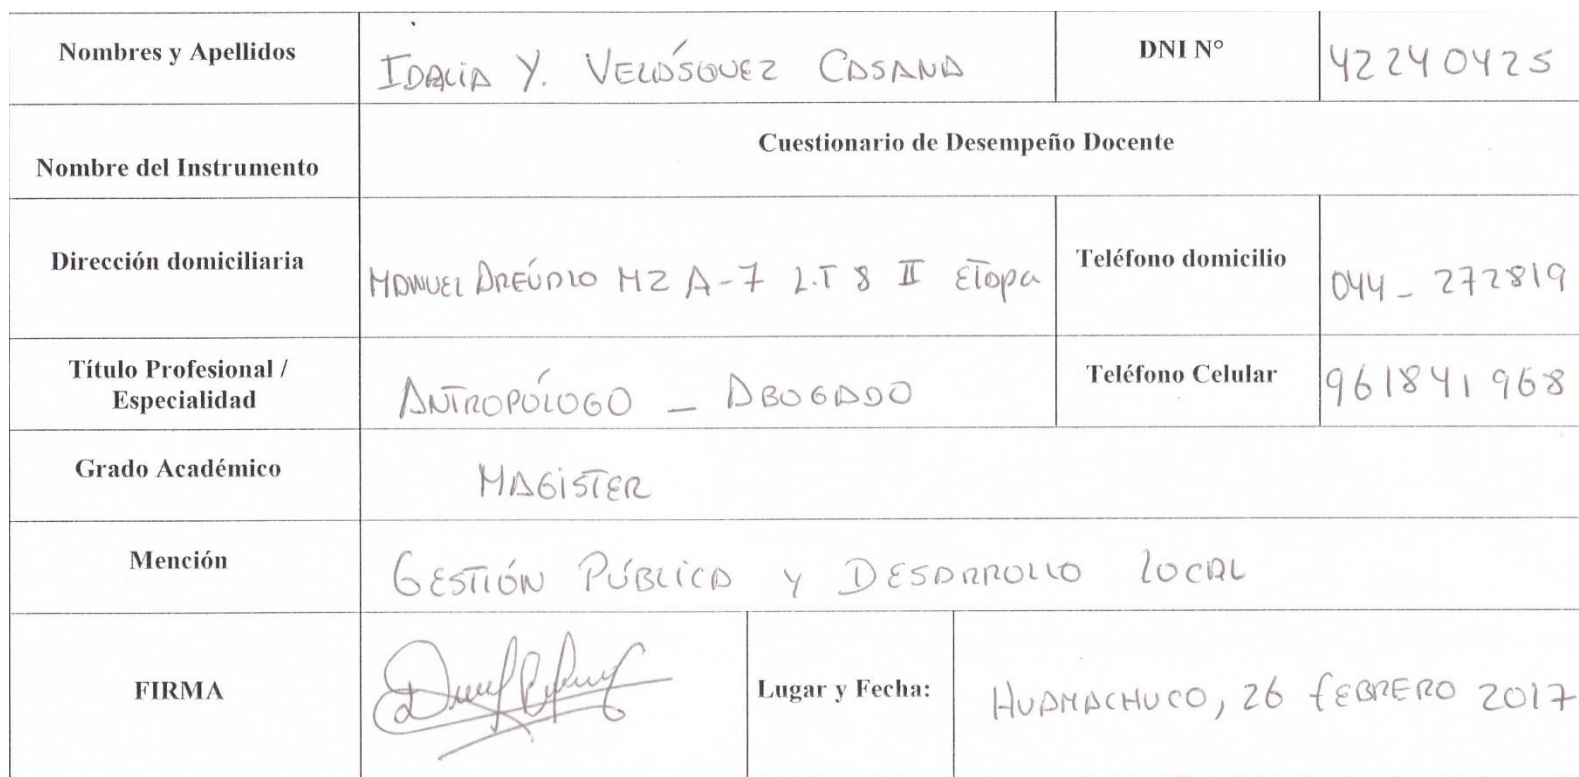 Nombres y Apellidos
IDALIA Y. VELÁSQUEZ CASANA
DNI N°
42240425
Nombre del Instrumento
Cuestionario de Desempeño Docente
Dirección domiciliaria
MANUEL ARÉVALO MZ A-7 L.T 8 II Etapa
Teléfono domicilio
044_ 272819
Título Profesional /
Especialidad
ANTROPÓLOGO _ ABOGADO
Teléfono Celular
961841968
Grado Académico
MAGISTER
Mención
GESTIÓN PÚBLICA Y DESARROLLO LOCAL
FIRMA
Lugar y Fecha:
HUAMACHUCO, 26 FEBRERO 2017